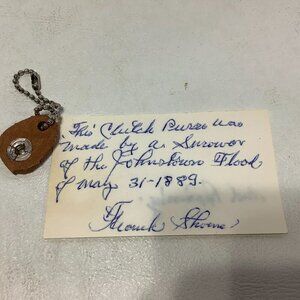 This Clutch Purse was
made by a Surviver
of the Johnstown Flood
of may 31-1889.
Frank